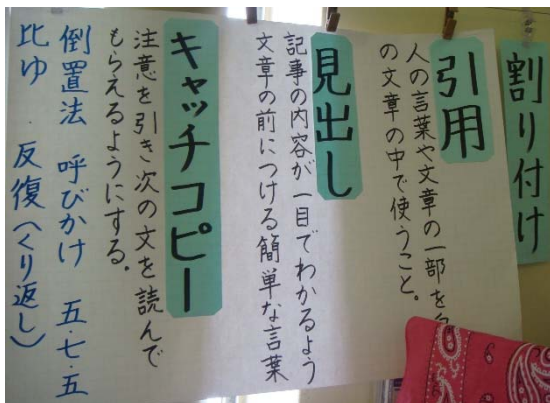 割り付け
引用
人の言葉や文章の一部を
の文章の中で使うこと。
見出し
記事の内容が一目でわかるよう
文章の前につける簡単な言葉
キャッチコピー
注意を引き次の文を読んで
もらえるようにする。
倒置法 呼びかけ 五・七・五
比ゆ 反復(くり返し)